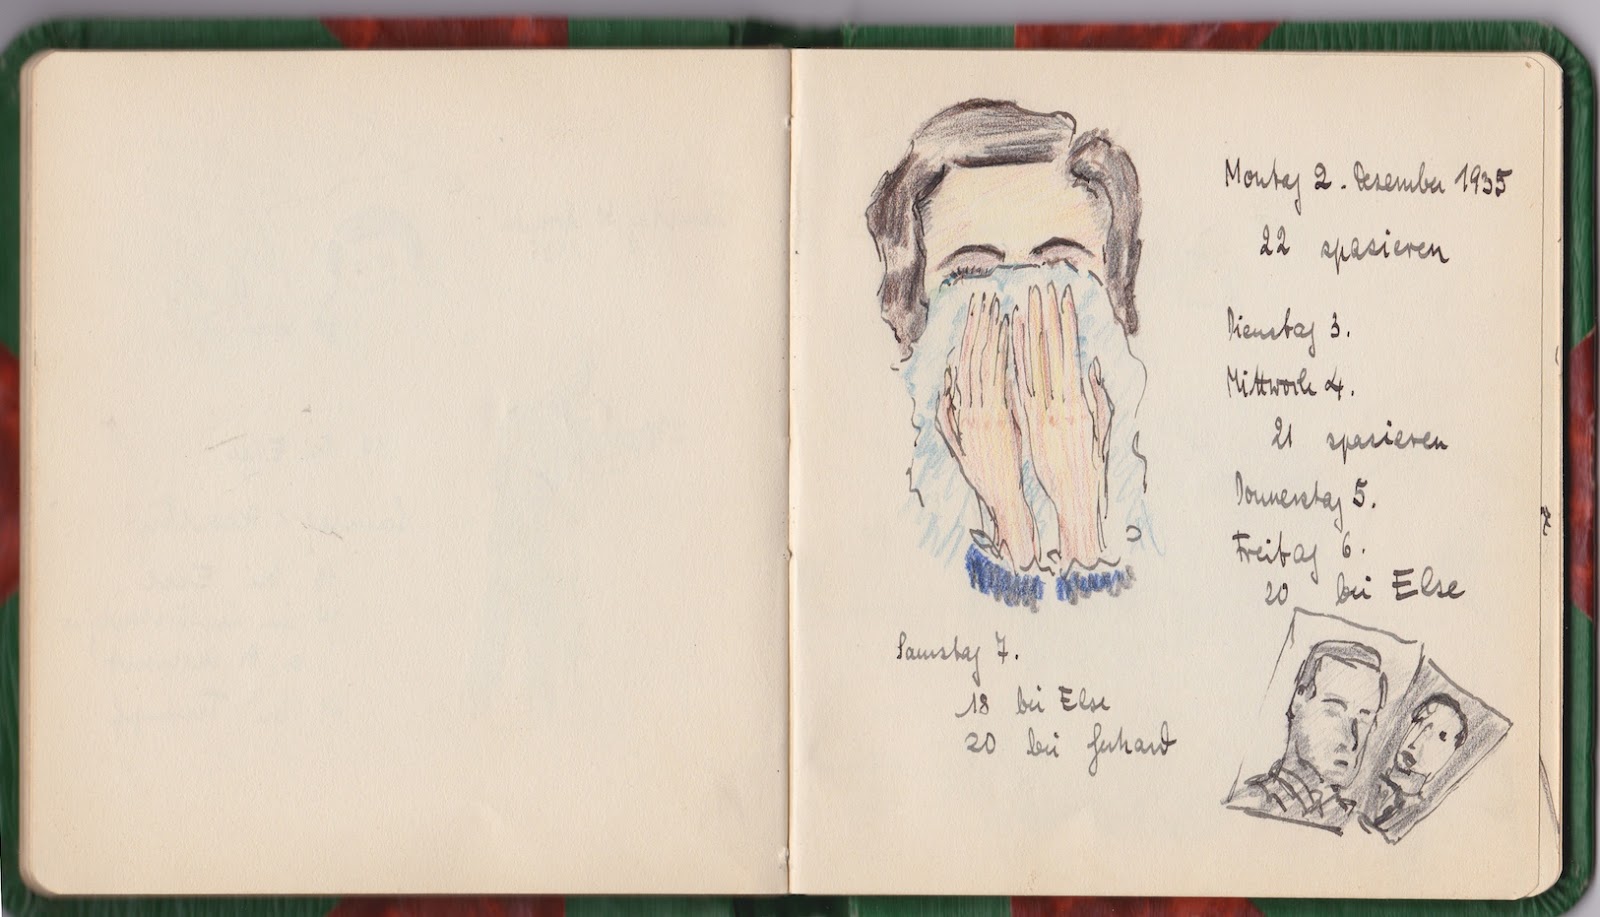 Montag 2. Dezember 1935
22 spazieren
Dienstag 3.
Mittwoch 4.
21 spazieren
Donnerstag 5.
Freitag 6.
20 bei Else
Samstag 7.
18 bei Else
20 bei Gerhard